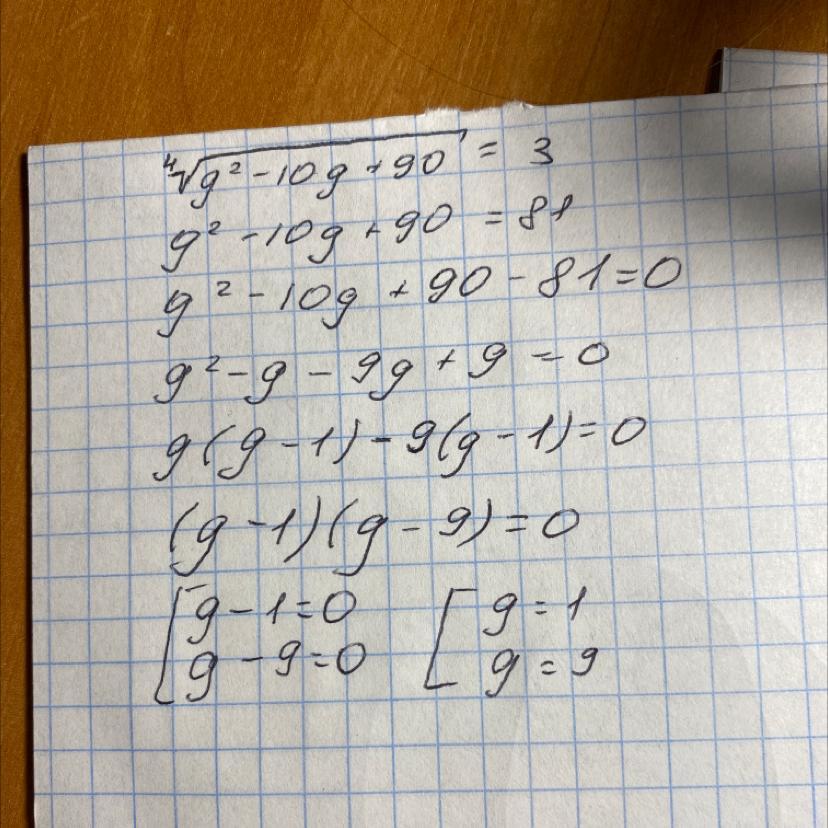 ⁴√(g² - 10g + 90) = 3
g² - 10g + 90 = 81
g² - 10g + 90 - 81 = 0
g² - g - 9g + 9 = 0
g(g - 1) - 9(g - 1) = 0
(g - 1)(g - 9) = 0
[g - 1 = 0 [g = 1
g - 9 = 0 g = 9